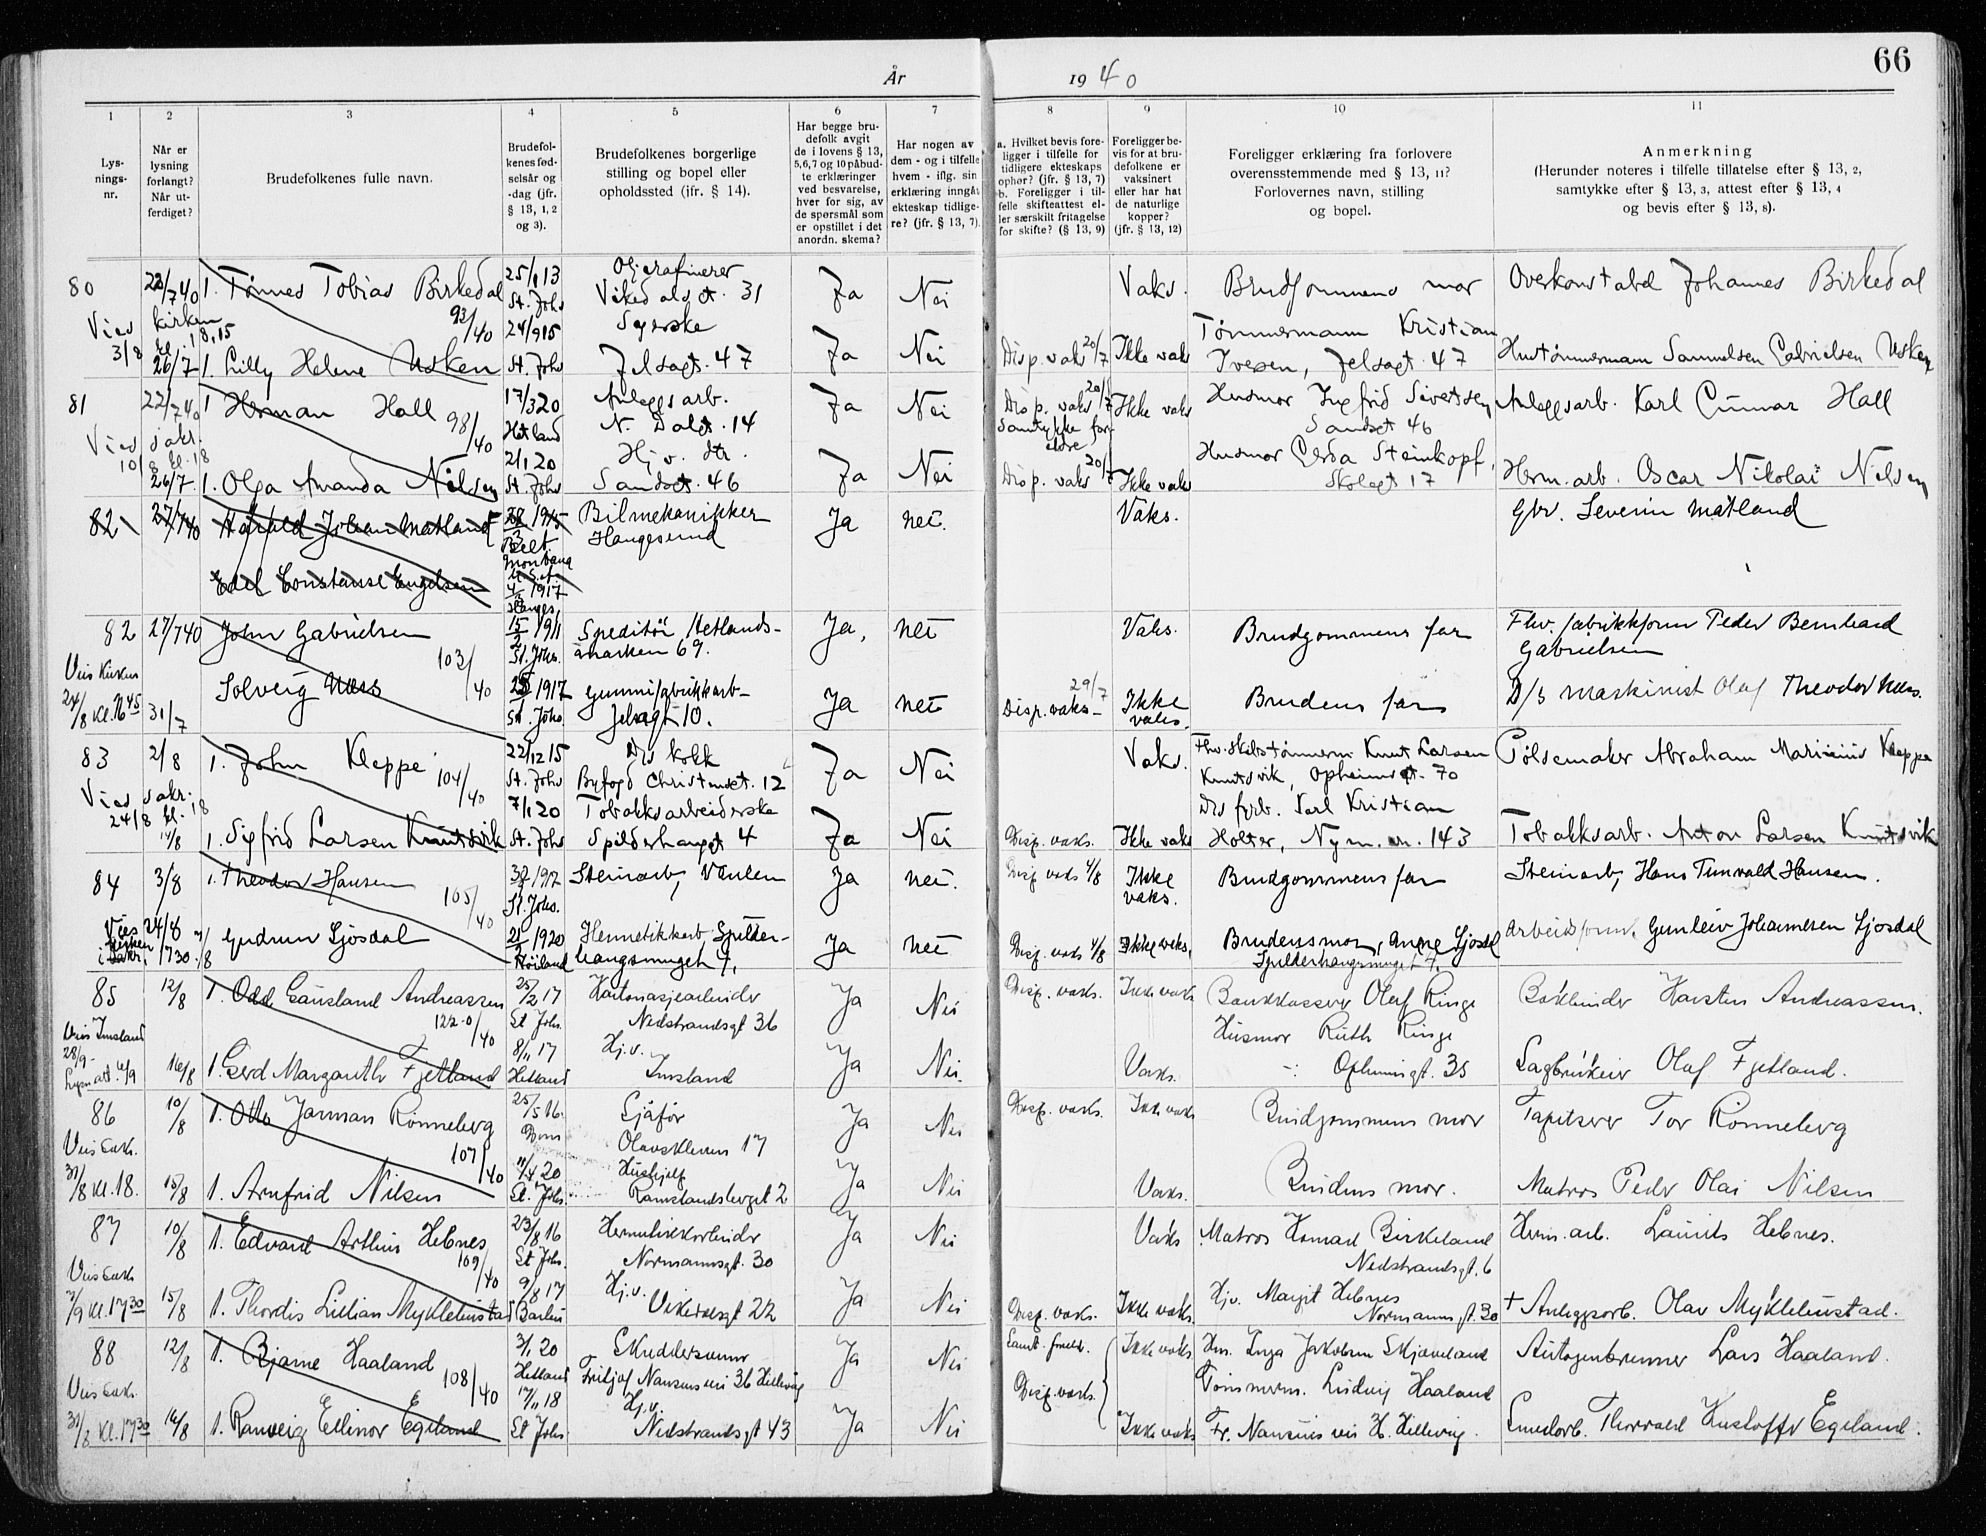 66
År 1940
1 2 3 4 5 6 7 8 9 10 11
Lys-
nings-
nr.
Når er
lysning
forlangt?
Når ut-
ferdiget?
Brudefolkenes fulle navn.
Brudefol-
kenes fød-
selsår og
-dag (jfr.
§ 13, 1, 2
og 3).
Brudefolkenes borgerlige
stilling og bopel eller
opholdssted (jfr. § 14).
Har begge bru-
defolk avgit
de i lovens § 13,
5,6,7 og 10 påbud-
te erklæringer
ved besvarelse,
hver for sig, av
de spørsmål som
er opstillet i det
anordn. skema?
Har nogen av
dem - og i tilfelle
hvem - iflg. sin
erklæring inngåt
ekteskap tidlige-
re? (jfr. § 13, 7).
a. Hvilket bevis fore-
ligger i tilfelle for
tidligere ekteskaps
ophør? (jfr. § 13, 7)
b. Foreligger i til-
felle skifteattest el-
ler særskilt fritagelse
for skifte? (§ 13, 9)
Foreligger be-
vis for at bru-
defolkene er
vaksinert
eller har hat
de naturlige
kopper?
(jfr. § 13, 12)
Foreligger erklæring fra forlovere
overensstemmende med § 13, 11?
Forlovernes navn, stilling
og bopel.
Anmerkning
(Herunder noteres i tilfelle tillatelse efter § 13, 2,
samtykke efter § 13, 3, attest efter § 13, 4
og bevis efter § 13, 8).
80 22/7 40 1. Tønnes Tobias Birkedal 93/40 25/1 13 St. Johs Oljerafinerer Vikedalsgt. 31 Ja Nei Vaks. Brudgommens mor Overkonstabel Johannes Birkedal
Vies 3/8 kirken kl. 18,15
26/7 1. Lilly Helene Usken 24/9 15 St. Johs Syerske Jelsagt. 47 Ja Nei Disp. vaks 20/7 Ikke vaks Tømmermann Kristian Iversen, Jelsagt. 47 Hustømmermann Samuelsen Gabrielsen Usken
81 22/7 40 1 Herman Hall 98/40 17/3 20 Hetland Anleggsarb. N. Dalgt. 14 Ja Nei Disp. vaks 20/7 Samtykke foreldre Ikke vaks Husmor Ingfrid Sivertsen Sandsgt 46 Anleggsarb. Karl Gunnar Hall
Vies sakr. 10/8 kl. 18
26/7. 1. Olga Amanda Nilsen 2/1 20 St. Johs Hj.v. dtr. Sandsgt. 46 Ja Nei Disp. vaks 20/7 Ikke vaks Husmor Gerda Steinkopf, Skolegt 17 Herm. arb. Oscar Nikolai Nilsen
82 27/7 40 Harald Johan Matland 1915 Belt Montana Bilmekanikker Haugesund Ja nei. Vaks. Gbr. Severin Matland
Edel Constanse Engelsen 1917 Hauges.
82 27/7 40 John Gabrielsen 103/40 15/2 1911 St. Johs. Speditör Hetlandsmarken 69. Ja, nei Vaks. Brudgommens far Fhv. fabrikkform Peder Bernhard Gabrielsen
Vies Kirken 24/8 Kl. 16 45
31/7 Solveig Næss 1917 St. Johs. Gummifabrikkarb- Jelsagt 10. Ja nei Disp. vaks- 29/7 Ikke vaks. Brudens far D/s maskinist Olaf Theodor Næss.
83 2/8 1. John Kleppe 104/40 22/12 15 St. Johs D/s kokk Byfogd Christensgt. 12 Ja Nei Vaks. Fhv. Skibstømmerm. Knut Larsen Knutsvik, Opheimsgt. 70 Pølsemaker Abraham Marinius Kleppe
Vies sakr. 24/8 kl. 18
14/8 1. Sigfrid Larsen Knutsvik 7/1 20 St. Johs Tobakksarbeiderske Spilderhauget 4 Ja Nei Disp. vaks. Ikke vaks D/s fyrb. Karl Kristian Holter, Nym. n. 143 Tobakksarb. Anton Larsen Knutsvik
84 3/8 1. Theodor Hansen 105/40 1917 St. Johs. Steinarb, Vaulen Ja nei. Disp vaks 4/8 Ikke vaks. Brudgommens far Steinarb, Hans Tunvald Hansen.
Vies 24/8 kirken i Sakr. 17 30
7/8 Gudrun Ljosdal 21/2 1920 Høiland Hermetikkarb Spilderhaugsmuget 7, Ja nei Disp vaks 4/8 Ikke vaks. Brudens mor, Anne Ljosdal Spilderhaugsmuget 7. Arbeidsform. Gunleiv Johannesen Ljosdal
85 12/8 1. Odd Gausland Andreassen 122.0/40 25/2 17 St Johs. Kartonasjearbeider Nedstrandsgt 36 Ja Nei Disp. vaks. Ikke vaks Bankkasserer Olaf Ringe Husmor Ruth Ringe Bokbinder Karsten Andreassen.
Vies Imsland 28/9 - Lysn att. 6/9
16/8 1. Gerd Margareth Fjetland 8/11 17 Hetland Hj.v. Imsland Ja Nei. Vaks. -: Opheimsgt. 35 Sagbrukeier Olaf Fjetland.
86 10/8 1. Otto Jarman Rønneberg 107/40 25/5 16. Sjåfør Olavskleven 17 Ja Nei Disp. vaks. Ikke vaks Brudgommens mor Tapetserer Tor Rønneberg
Vies Sakr. 31/8 Kl. 18.
15/8 1. Arnfrid Nilsen 11/4 20 St. Johs. Hushjelp Ramslandsberget 2 Ja Nei Vaks. Brudens mor. Matros Peder Olai Nilsen
87 10/8 1. Edvard Arthur Hebnes 109/40 23/8 16 St Johs. Hermetikkarbeider Normannsgt. 30 Ja Nei Vaks Matros Konrad Birkeland Nedstrandsgt. 6 Herm. arb. Laurits Hebnes.
Vies Sakr. 7/9 Kl. 17 30
15/8 1. Thordis Lillian Myklebustad 9/8 17 Hj.v. Vikedalsgt 22 Ja Nei Disp. vaks. Ikke vaks. Hj.v. Margit Hebnes Normannsgt. 30 + Anleggsarb. Olav Myklebustad.
88 12/8 1. Bjarne Haaland 108/40 3/1 20 Hetland Skuddersvenn Fritjof Nansens vei 36 Hillevåg Ja Nei Samt. foreld. Ikke vaks. Hm. Inga Jakobsen Skjæveland Autogenbrenner Lars Haaland.
Vies Sakr. 31/8 Kl. 17 30
14/8 1. Ranveig Ellinor Egeland 17/11 18 St Johs Hj.v. Nedstrandsgt 43 Ja Nei Disp. vaks. Ikke vaks. Tømmerm. Ludvig Haaland Fr. Nansens vei H. Hillevåg. Smedarb. Thorvald Kristoffer Egeland.